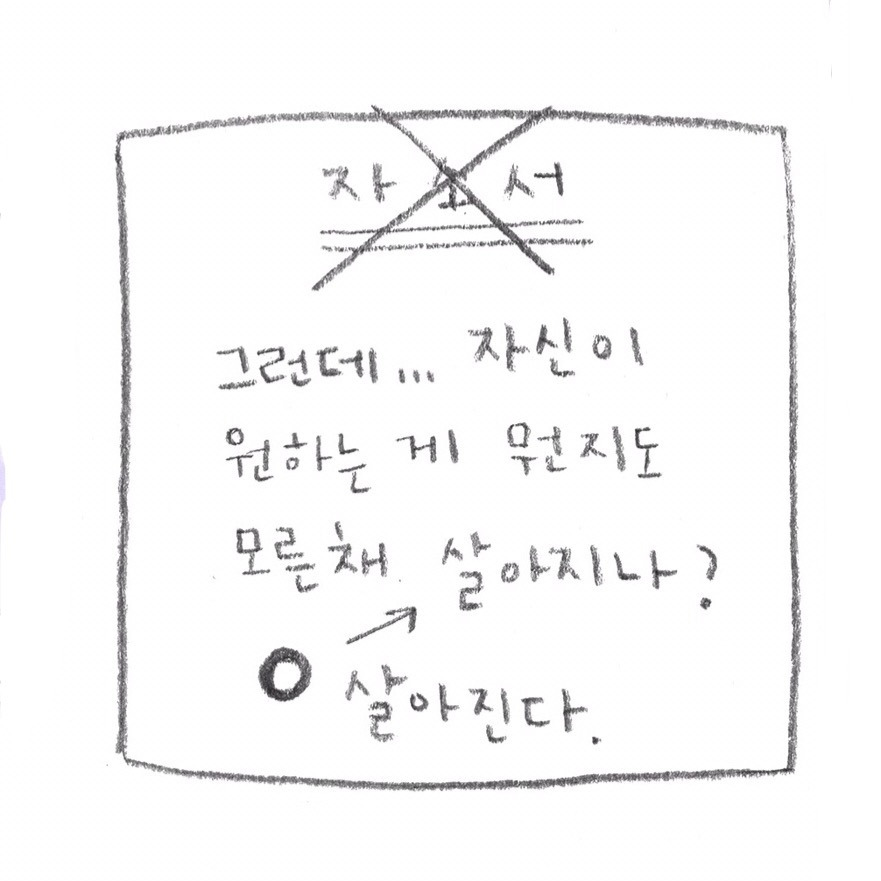 자소서
그런데... 자신이
원하는 게 뭔지도
모른채 살아지나?
살아진다.